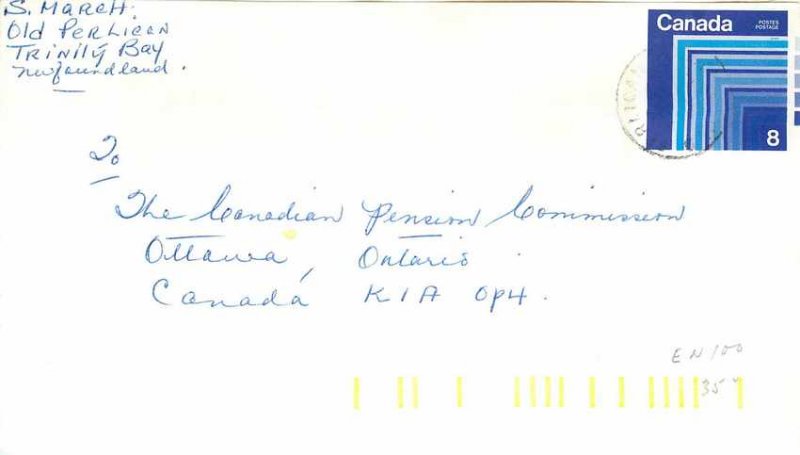 S. March.
Old Perlican
Trinity Bay
Newfoundland.
Canada
POSTES
POSTAGE
8
To
The Canadian Pension Commission
Ottawa, Ontario
Canada K1A 0P4.
EN100
35